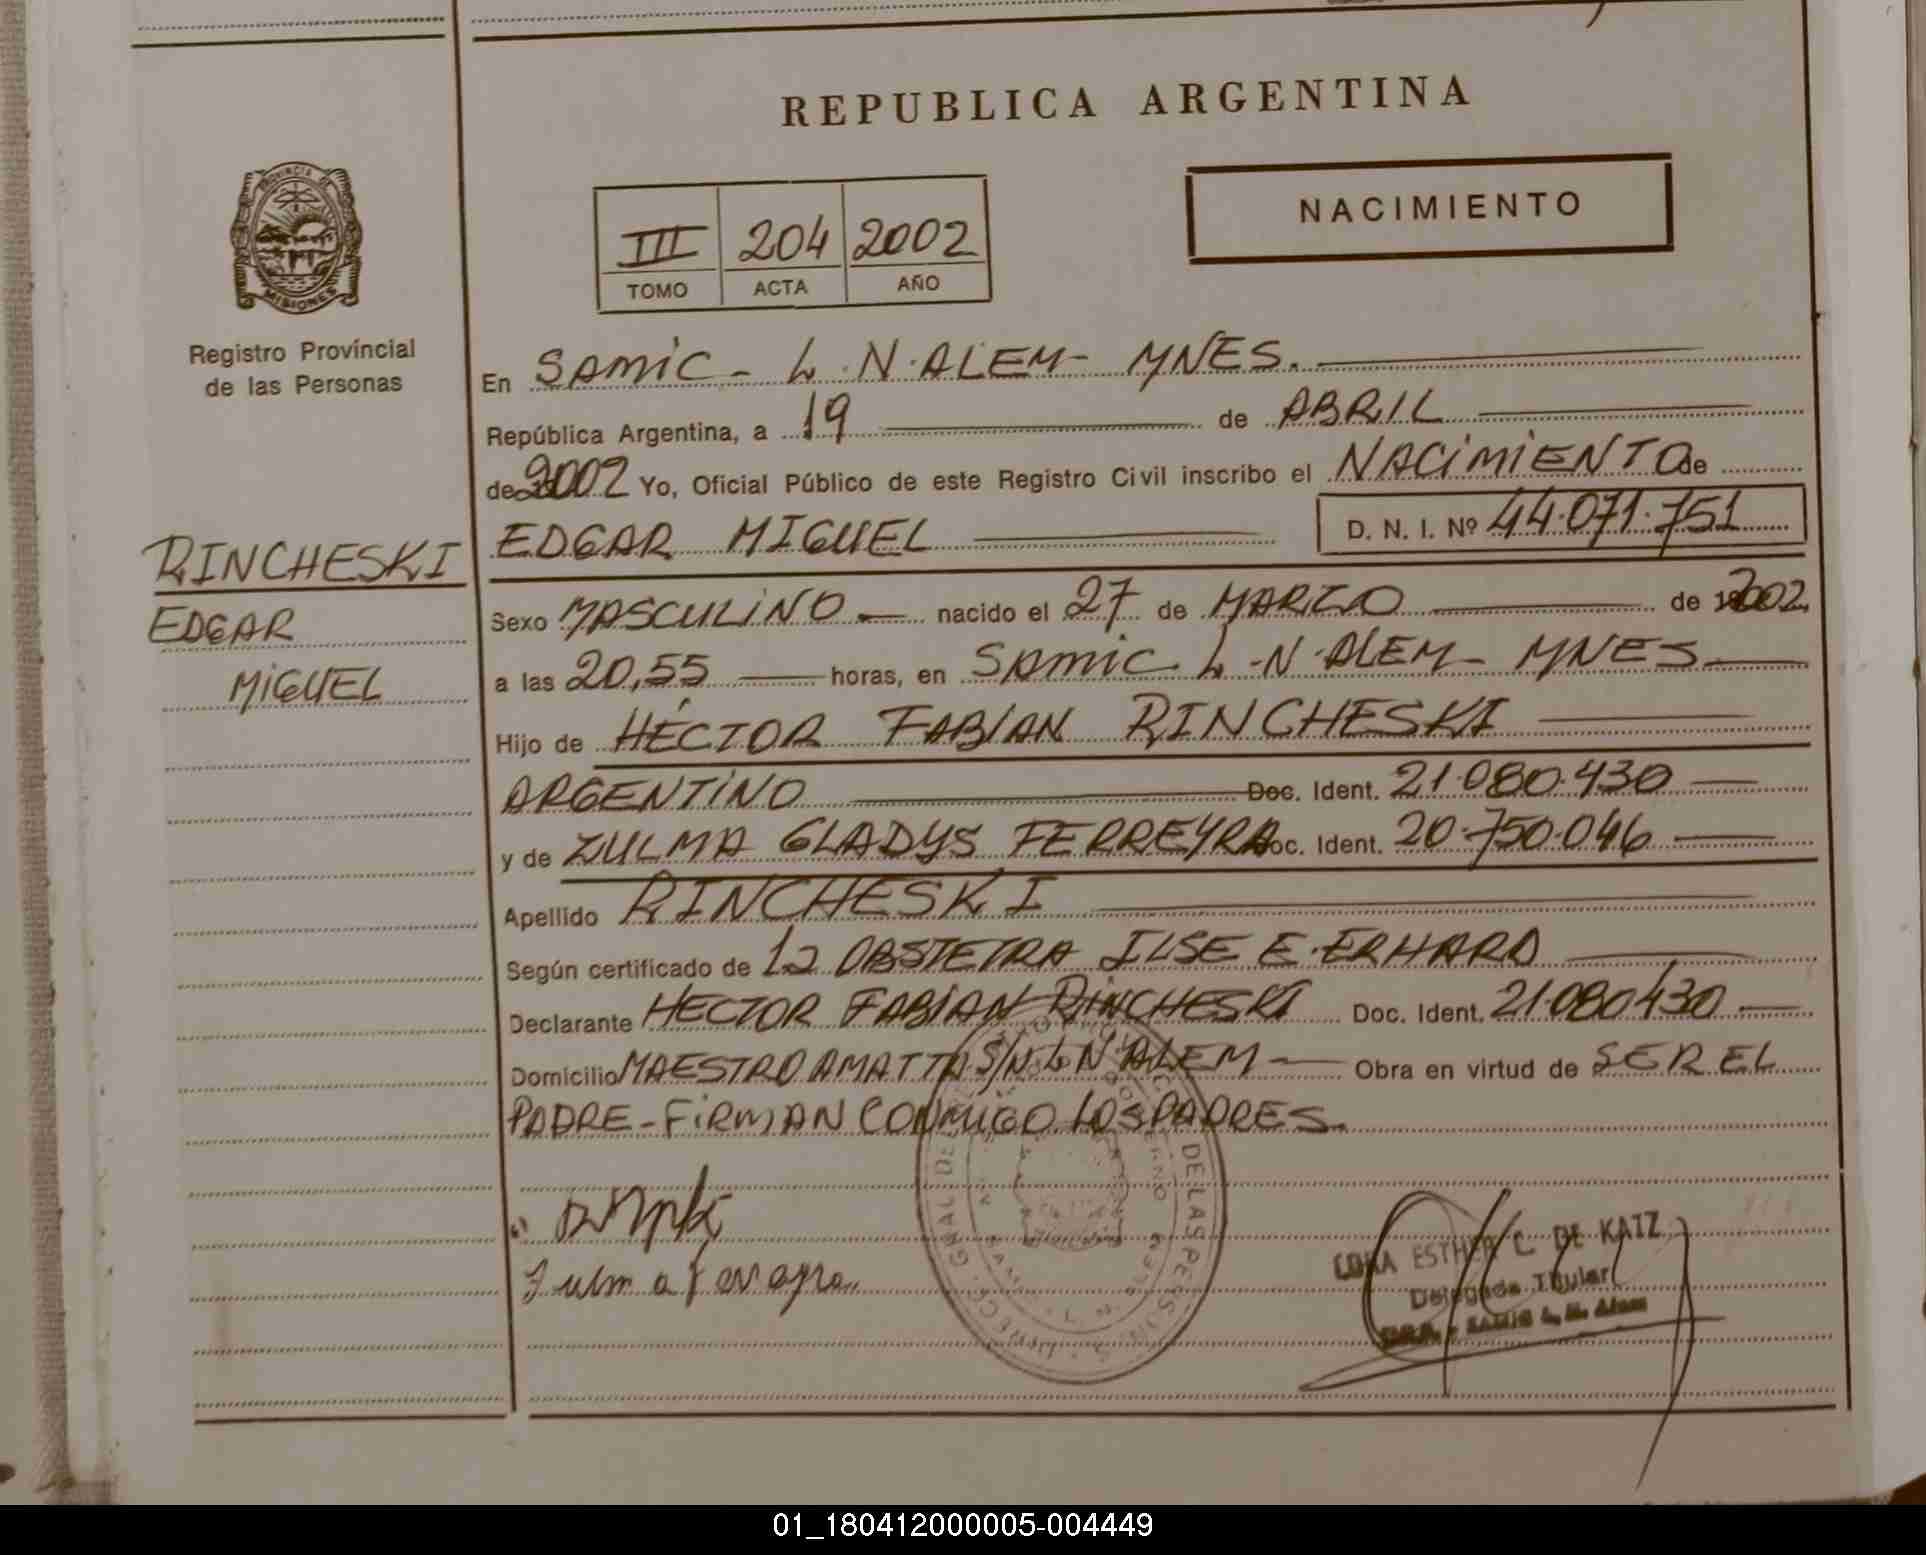 REPUBLICA ARGENTINA
PROVINCIA DE
MISIONES
Registro Provincial
de las Personas
III 204 2002
TOMO ACTA AÑO
NACIMIENTO
En SAMIC - L.N.ALEM- MNES.
República Argentina, a 19 de ABRIL
de 2002 Yo, Oficial Público de este Registro Civil inscribo el NACIMIENTO de
EDGAR MIGUEL D. N. I. Nº 44.071.751
RINCHESKI
EDGAR
MIGUEL
Sexo MASCULINO nacido el 27 de MARZO de 2002
a las 20,55 horas, en SAMIC L.N.ALEM- MNES
Hijo de HÉCTOR FABIAN RINCHESKI
ARGENTINO Doc. Ident. 21.080.430
y de ZULMA GLADYS FERREYRA Doc. Ident. 20.750.046
Apellido RINCHESKI
Según certificado de La OBSTETRA ILSE E. ERHARD
Declarante HECTOR FABIAN RINCHESKI Doc. Ident. 21.080430
Domicilio MAESTRO AMATTA S/N L N ALEM Obra en virtud de SER EL
PADRE-FIRMAN CONMIGO LOS PADRES.
ESTHER C. DE KATZ
Delegada Titular
SAMIC L. N. Alem
01_180412000005-004449